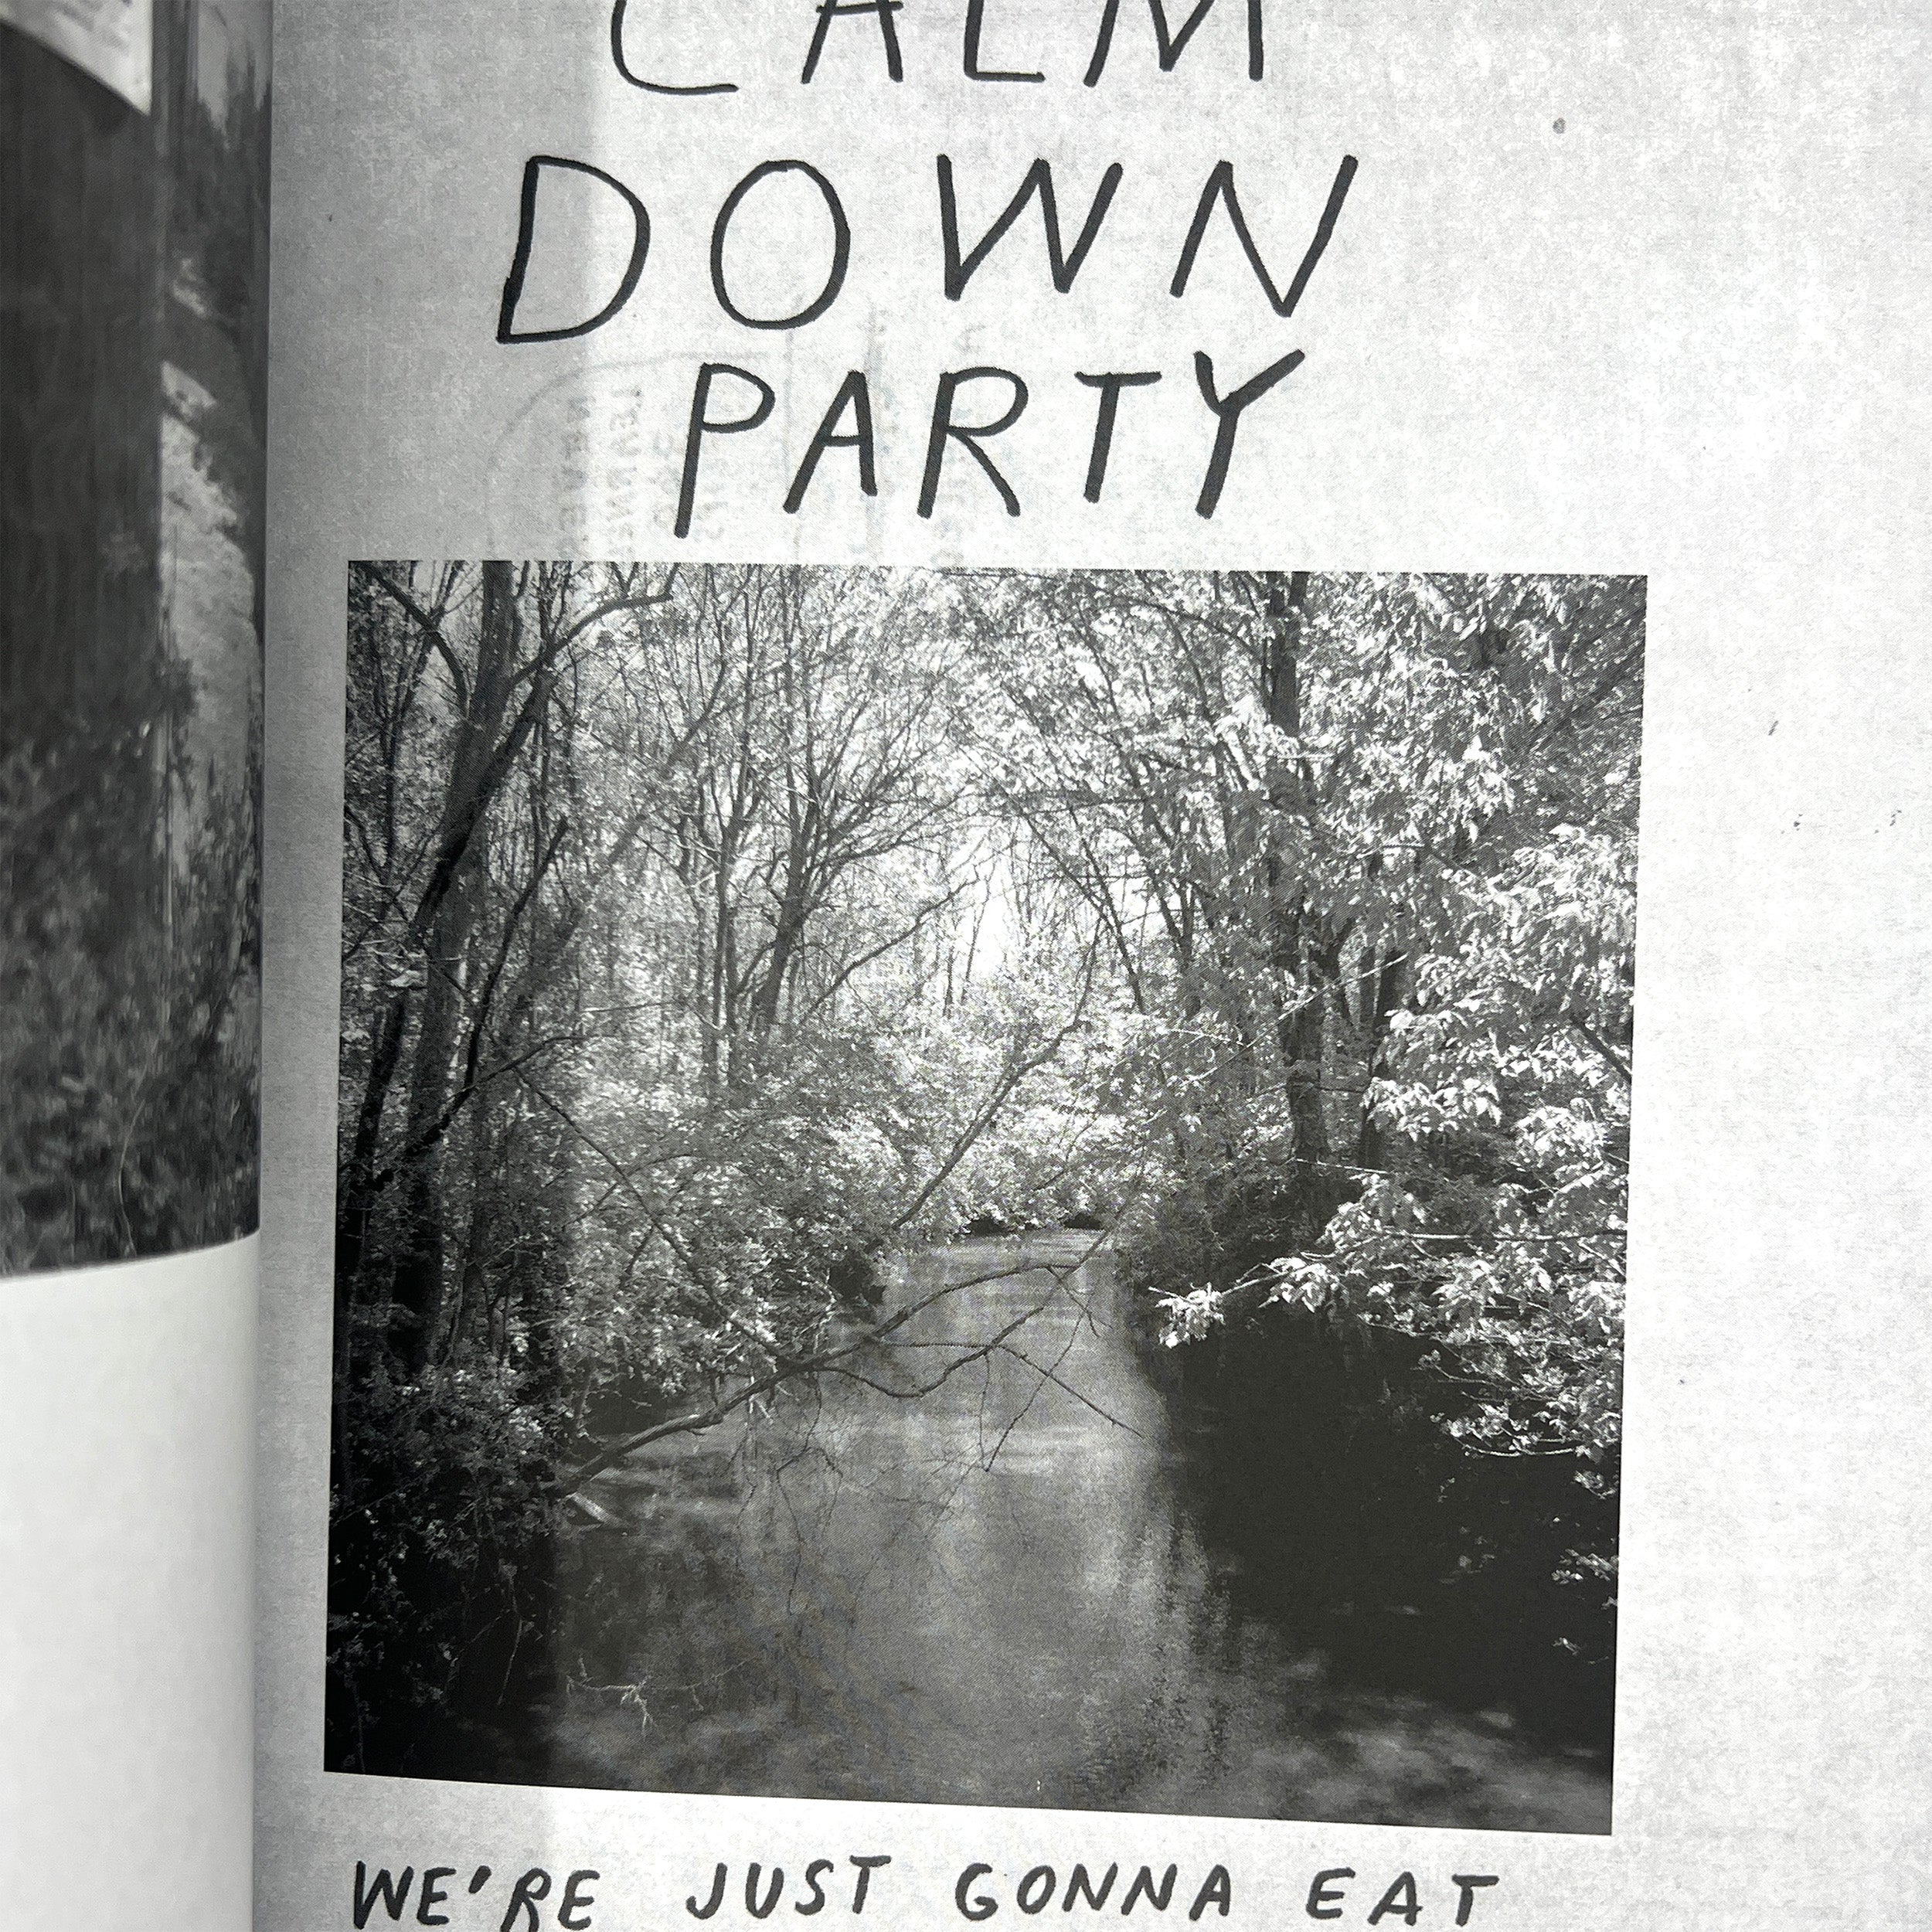 CALM
DOWN
PARTY
WE'RE JUST GONNA EAT